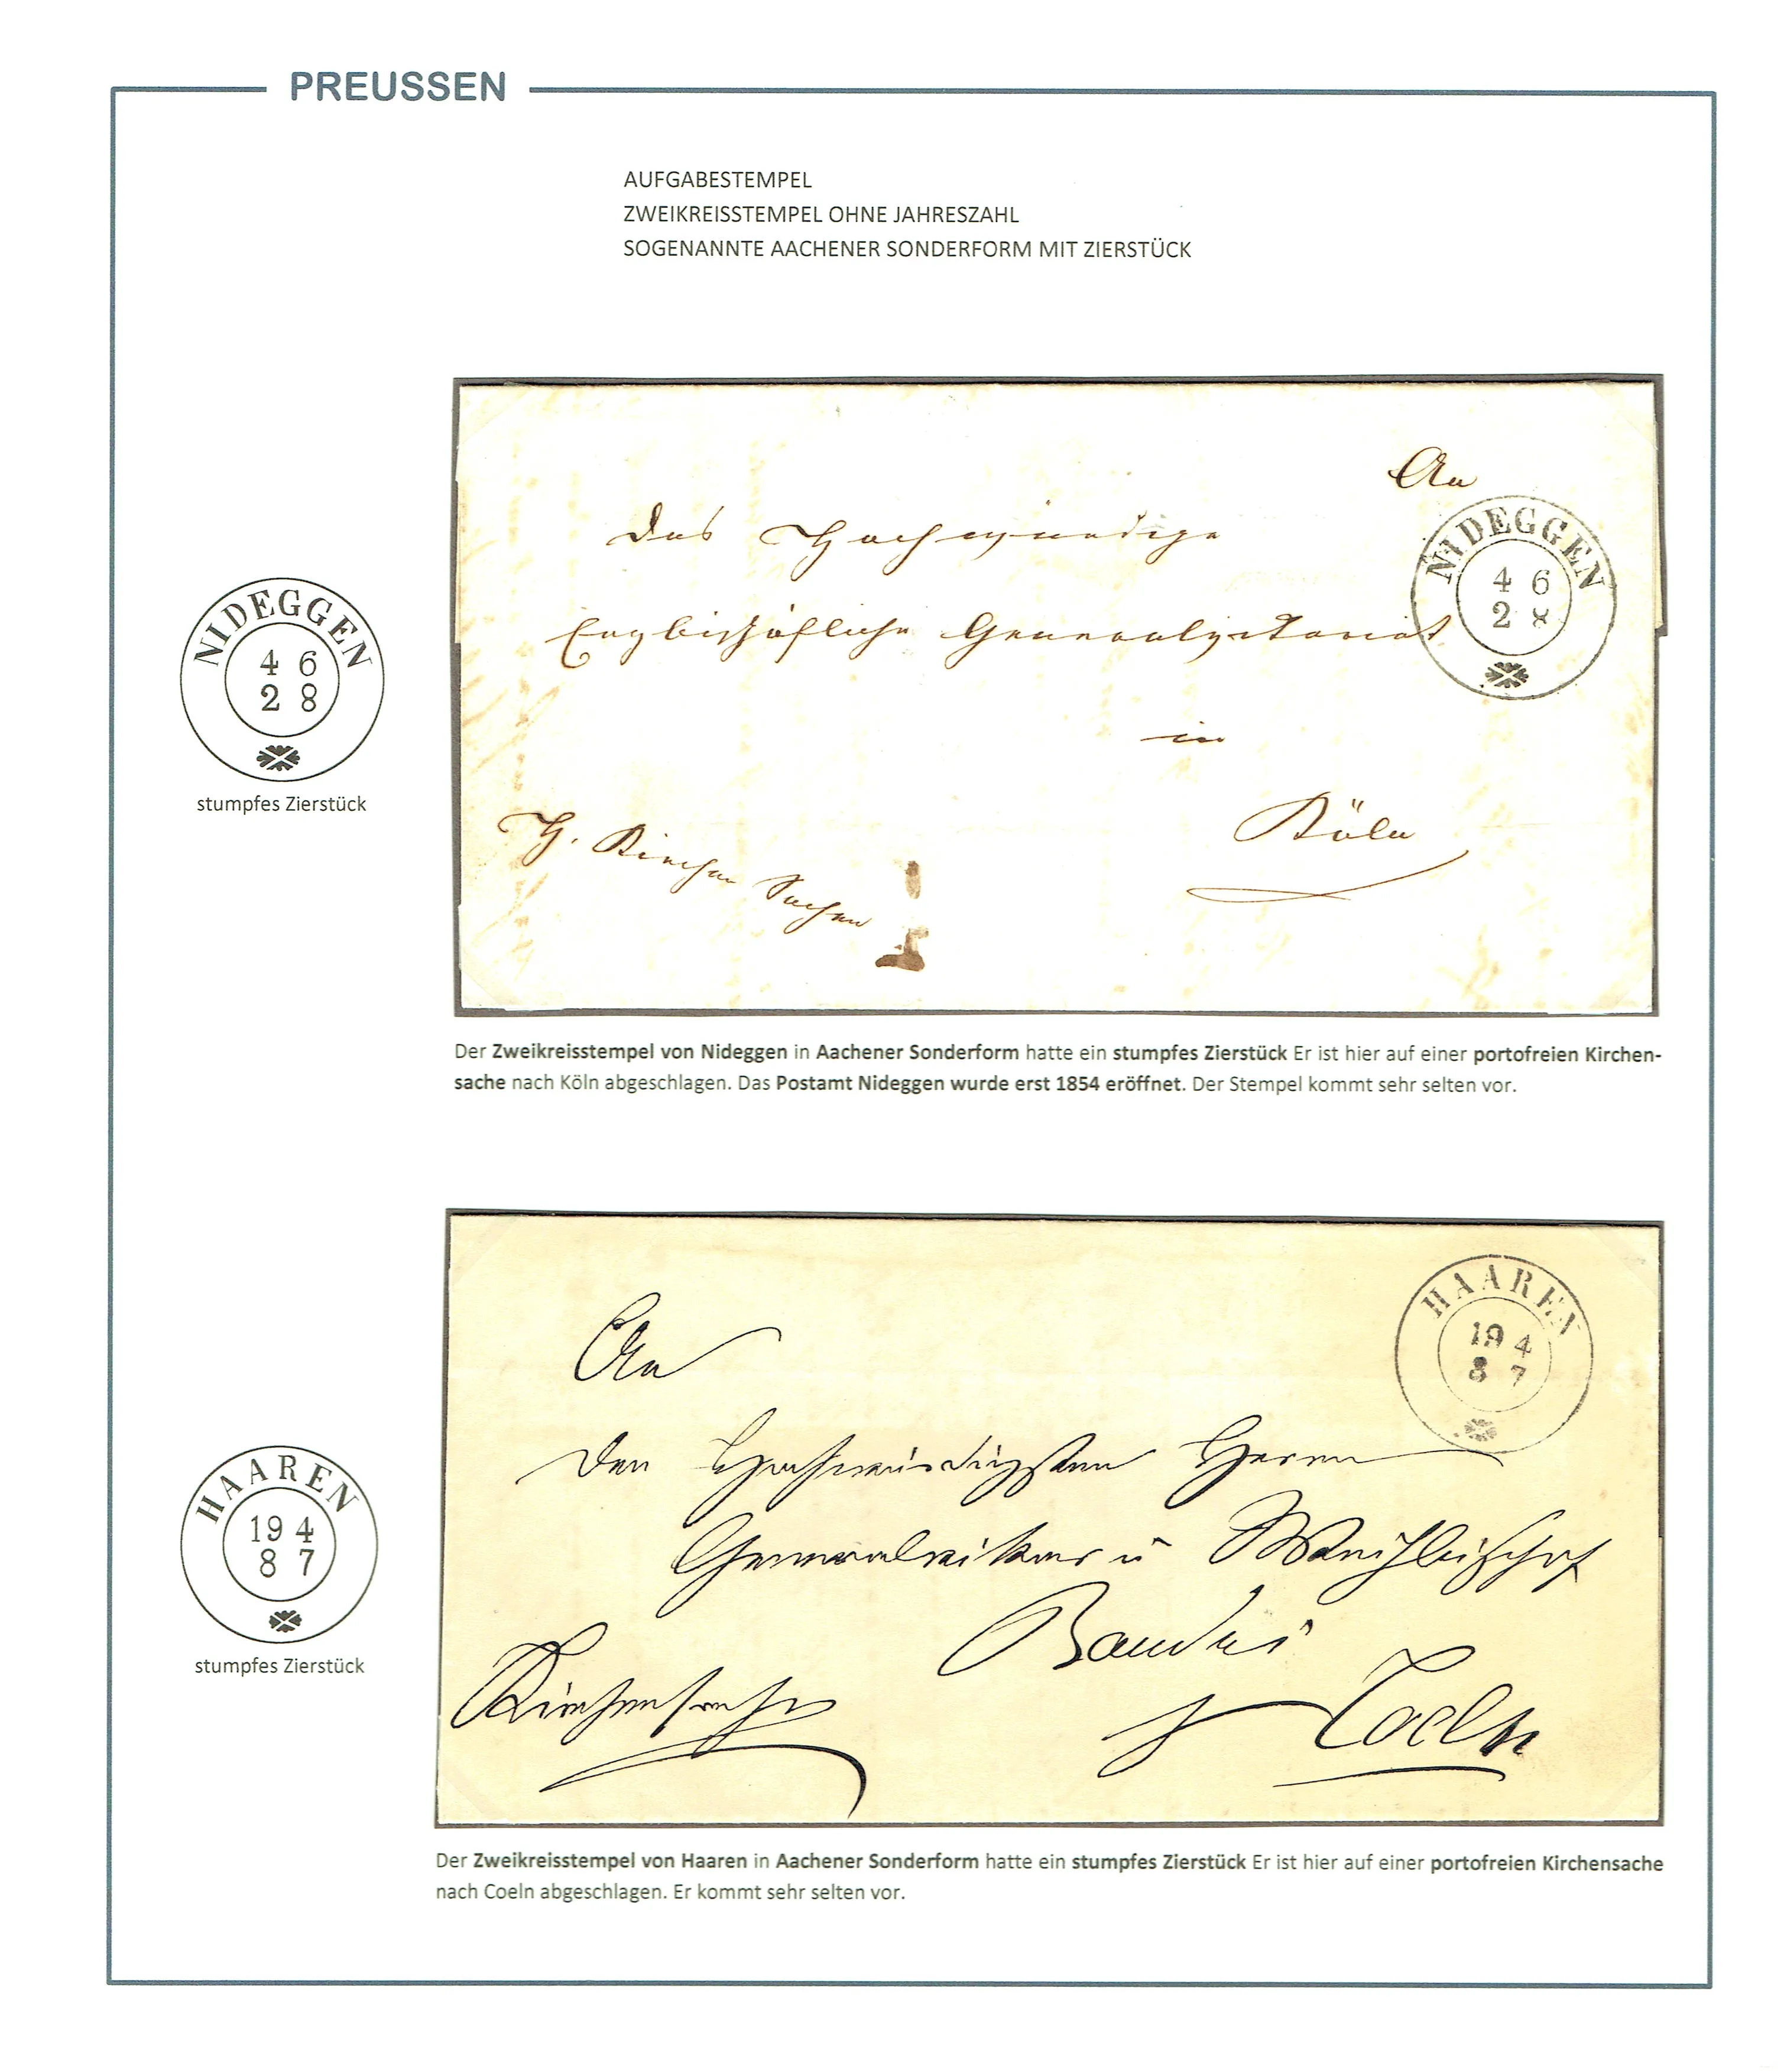 PREUSSEN
AUFGABESTEMPEL
ZWEIKREISSTEMPEL OHNE JAHRESZAHL
SOGENANNTE AACHENER SONDERFORM MIT ZIERSTÜCK
An
das Hochwürdige
Erzbischöfliche Generalvikariat
in
Köln
H. Kirchen Sachen
NIDEGGEN
4 6
2 8
NIDEGGEN
4 6
2 8
stumpfes Zierstück
Der Zweikreisstempel von Nideggen in Aachener Sonderform hatte ein stumpfes Zierstück Er ist hier auf einer portofreien Kirchen-
sache nach Köln abgeschlagen. Das Postamt Nideggen wurde erst 1854 eröffnet. Der Stempel kommt sehr selten vor.
HAAREN
19 4
8 7
An
den Hochwürdigsten Herrn
Generalvikar u Weihbischof
Baudri
Coeln
Kirchensache
HAAREN
19 4
8 7
stumpfes Zierstück
Der Zweikreisstempel von Haaren in Aachener Sonderform hatte ein stumpfes Zierstück Er ist hier auf einer portofreien Kirchensache
nach Coeln abgeschlagen. Er kommt sehr selten vor.